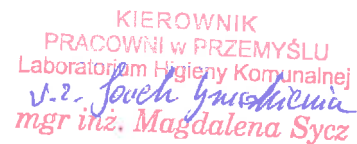 KIEROWNIK
PRACOWNI w PRZEMYŚLU
Laboratorium Higieny Komunalnej
mgr inż. Magdalena Sycz